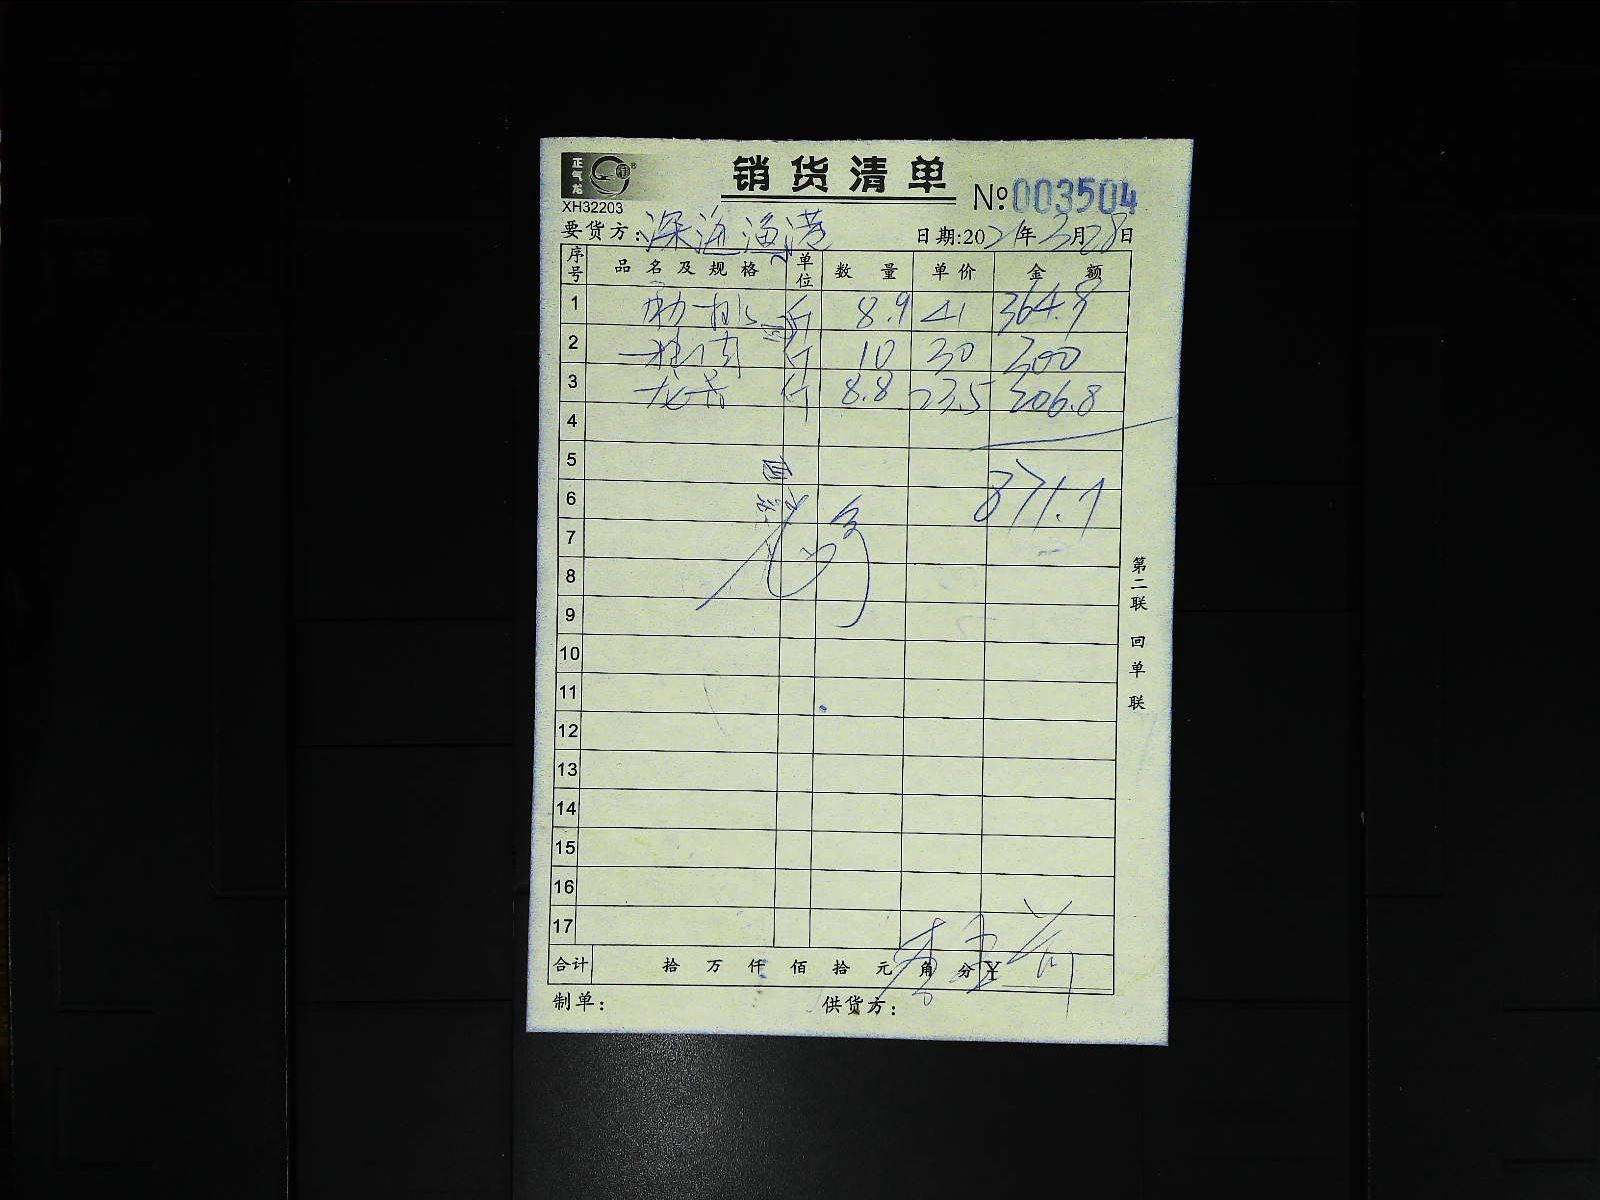 正气龙
XH32203
销货清单
№003504
要货方：深海渔港 日期:2021年3月28日
序号 品名及规格 单位 数量 单价 金额
1 斤 8.9 41 364.9
2 斤 10 30 300
3 斤 8.8 23.5 206.8
4
5
6 871.7
7
8
9
10
11
12
13
14
15
16
17
合计 拾 万 仟 佰 拾 元 角 分 ¥
制单： 供货方：
第二联 回单联